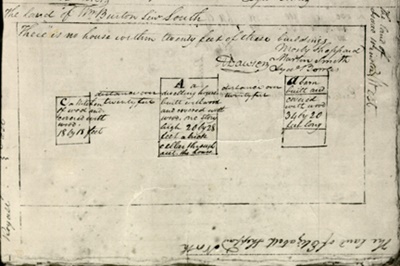 The land of Wm Burton Senr South
There is no house within twenty feet of these buildings.
Mosly Sheppard
Martin Smith
Dawson
C a kitchen
of wood and
covered with
wood.
18 by 18 feet
distance over
twenty feet
A a
dwelling house
built with wood
and covered with
wood one story
high 20 by 28
feet a brick
cellar through
out the house
distance over
twenty feet
a barn
built and
covered
with wood
34 by 20
feet long
The land of
The land of Elizabeth Sheppard North